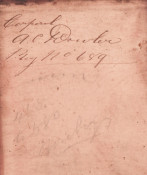 Corporal
A C Dowler
Reg No 689